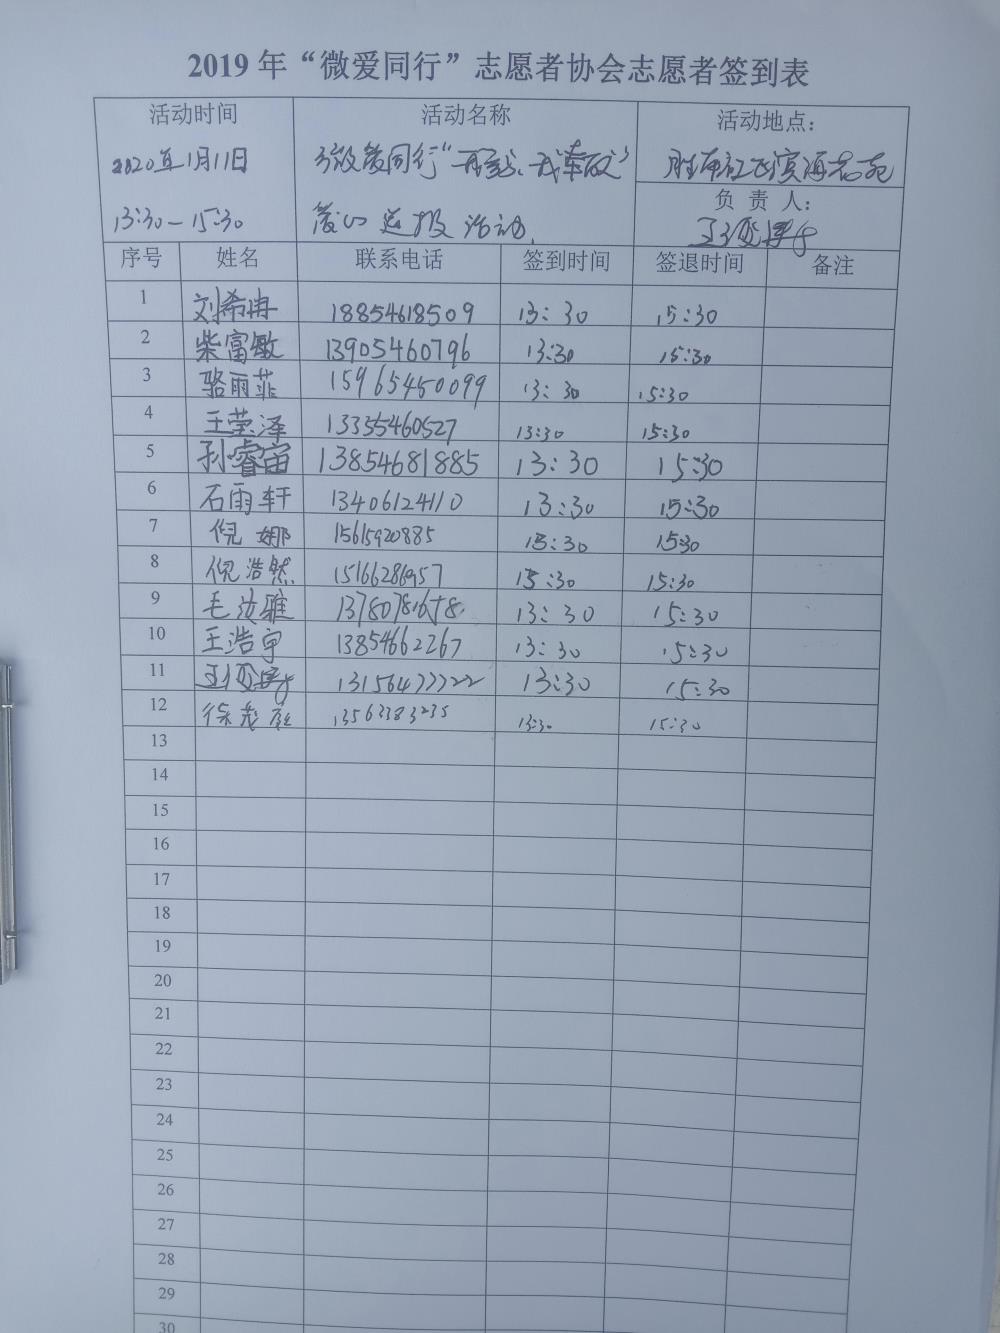 2019 年“微爱同行”志愿者协会志愿者签到表
活动时间 活动名称 活动地点：
2020年1月11日 微爱同行“ 滨海名苑
13:30—15:30 爱心送报活动.
负 责 人：
序号 姓名 联系电话 签到时间 签退时间 备注
1 刘希冉 18854618509 13：30 15:30
2 柴富敏 13905460796 13:30 15:30
3 骆雨菲 15965450099 13：30 15:30
4 王莹泽 13355460527 13:30 15:30
5 孙睿宙 13854681885 13：30 15:30
6 石雨轩 13406124110 13:30 15:30
7 倪娜 15615920885 15:30 15:30
8 倪浩然 15166286957 15:30 15:30
9 毛汝雅 13:30 15:30
10 王浩宇 13854662267 13:30 15:30
11 13:30 15:30
12 徐 13563383235 13:30 15:30
13
14
15
16
17
18
19
20
21
22
23
24
25
26
27
28
29
30